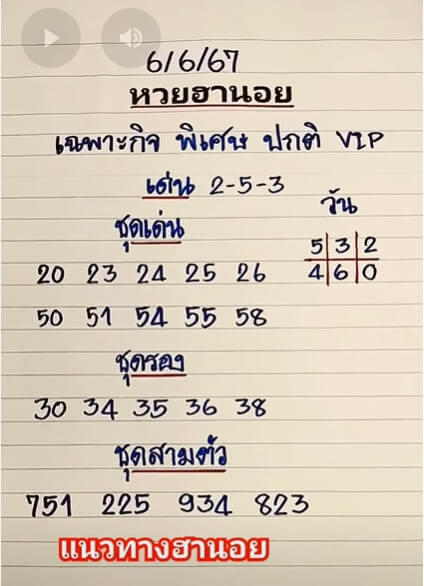 6/6/67
หวยฮานอย
เฉพาะกิจ พิเศษ ปกติ VIP
เด่น 2-5-3
วัน
ชุดเด่น
5 3 2
4 6 0
20 23 24 25 26
50 51 54 55 58
ชุดรอง
30 34 35 36 38
ชุดสามตัว
751 225 934 823
แนวทางฮานอย